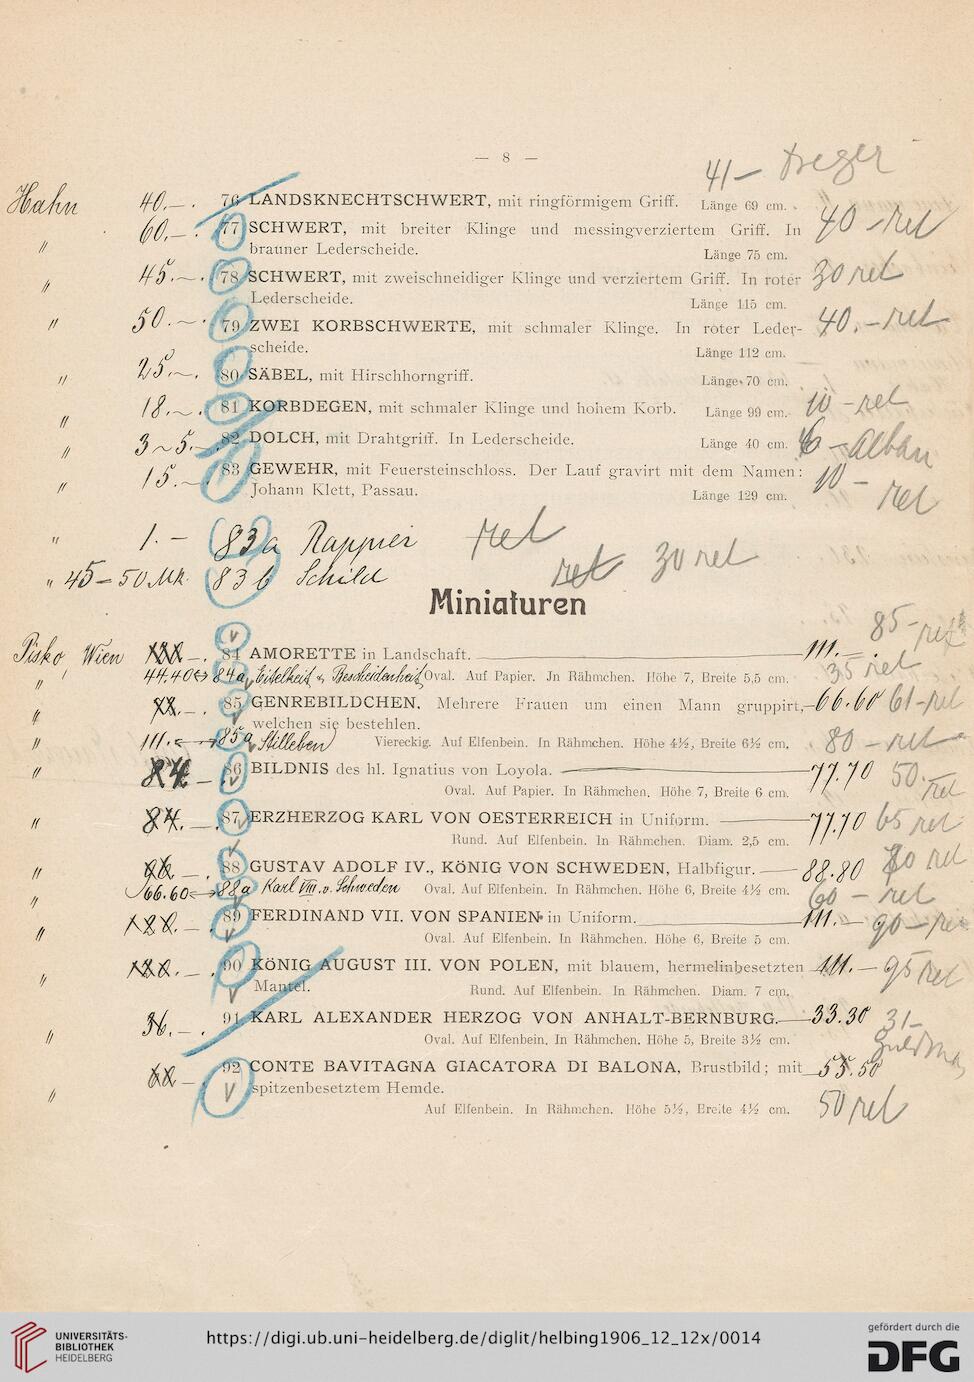 — 8 —
41 –
Hahn 40.–. 76 LANDSKNECHTSCHWERT, mit ringförmigem Griff. Länge 69 cm.
" 60.–. 77 SCHWERT, mit breiter Klinge und messingverziertem Griff. In 40 – ret
brauner Lederscheide. Länge 75 cm.
" 45.–. 78 SCHWERT, mit zweischneidiger Klinge und verziertem Griff. In roter 30 ret
Lederscheide. Länge 115 cm.
" 50.–. 79 ZWEI KORBSCHWERTE, mit schmaler Klinge. In roter Leder- 40.– ret
scheide. Länge 112 cm.
" 25.–. 80 SÄBEL, mit Hirschhorngriff. Länge 70 cm.
" 18.–. 81 KORBDEGEN, mit schmaler Klinge und hohem Korb. Länge 99 cm. 10 – ret
" 3–5.–. 82 DOLCH, mit Drahtgriff. In Lederscheide. Länge 40 cm. 6 – Alban
" 15.–. 83 GEWEHR, mit Feuersteinschloss. Der Lauf gravirt mit dem Namen: 10 –
Johann Klett, Passau. Länge 129 cm. ret
" 1.– 83a Rappier ret
" 45–50 Mk. 83b Schild ret 30 ret
Miniaturen
85 – ret
Pisko Wien 84 AMORETTE in Landschaft. 111.–
" 44.40 84a Eitelkeit u Bescheidenheit Oval. Auf Papier. Jn Rähmchen. Höhe 7, Breite 5,5 cm. 35 ret
" 85 GENREBILDCHEN. Mehrere Frauen um einen Mann gruppirt, 66.60 61 – ret
welchen sie bestehlen.
" 111. 85a Stilleben Viereckig. Auf Elfenbein. In Rähmchen. Höhe 4½, Breite 6½ cm. 80 – ret
" 84.– 86 BILDNIS des hl. Ignatius von Loyola. 77.70 50. ret
Oval. Auf Papier. In Rähmchen. Höhe 7, Breite 6 cm.
" 84.–. 87 ERZHERZOG KARL VON OESTERREICH in Uniform. 77.70 65 ret
Rund. Auf Elfenbein. In Rähmchen. Diam. 2,5 cm.
" 88 GUSTAV ADOLF IV., KÖNIG VON SCHWEDEN, Halbfigur. 88.80 ret
" 66.60 88a Karl VIII. v. Schweden Oval. Auf Elfenbein. In Rähmchen. Höhe 6, Breite 4½ cm. 60 – ret
" 120.–. 89 FERDINAND VII. VON SPANIEN in Uniform. 111.– 90 – ret
Oval. Auf Elfenbein. In Rähmchen. Höhe 6, Breite 5 cm.
" 120.–. 90 KÖNIG AUGUST III. VON POLEN, mit blauem, hermelinbesetzten 111.– 95 ret
Mantel. Rund. Auf Elfenbein. In Rähmchen. Diam. 7 cm.
" 36.–. 91 KARL ALEXANDER HERZOG VON ANHALT-BERNBURG. 33.30 31 –
Oval. Auf Elfenbein. In Rähmchen. Höhe 5, Breite 3½ cm.
" 92 CONTE BAVITAGNA GIACATORA DI BALONA, Brustbild; mit 55.50
spitzenbesetztem Hemde.
Auf Elfenbein. In Rähmchen. Höhe 5½, Breite 4½ cm. 50 ret
UNIVERSITÄTS-
BIBLIOTHEK
HEIDELBERG
https://digi.ub.uni-heidelberg.de/diglit/helbing1906_12_12x/0014
gefördert durch die
DFG